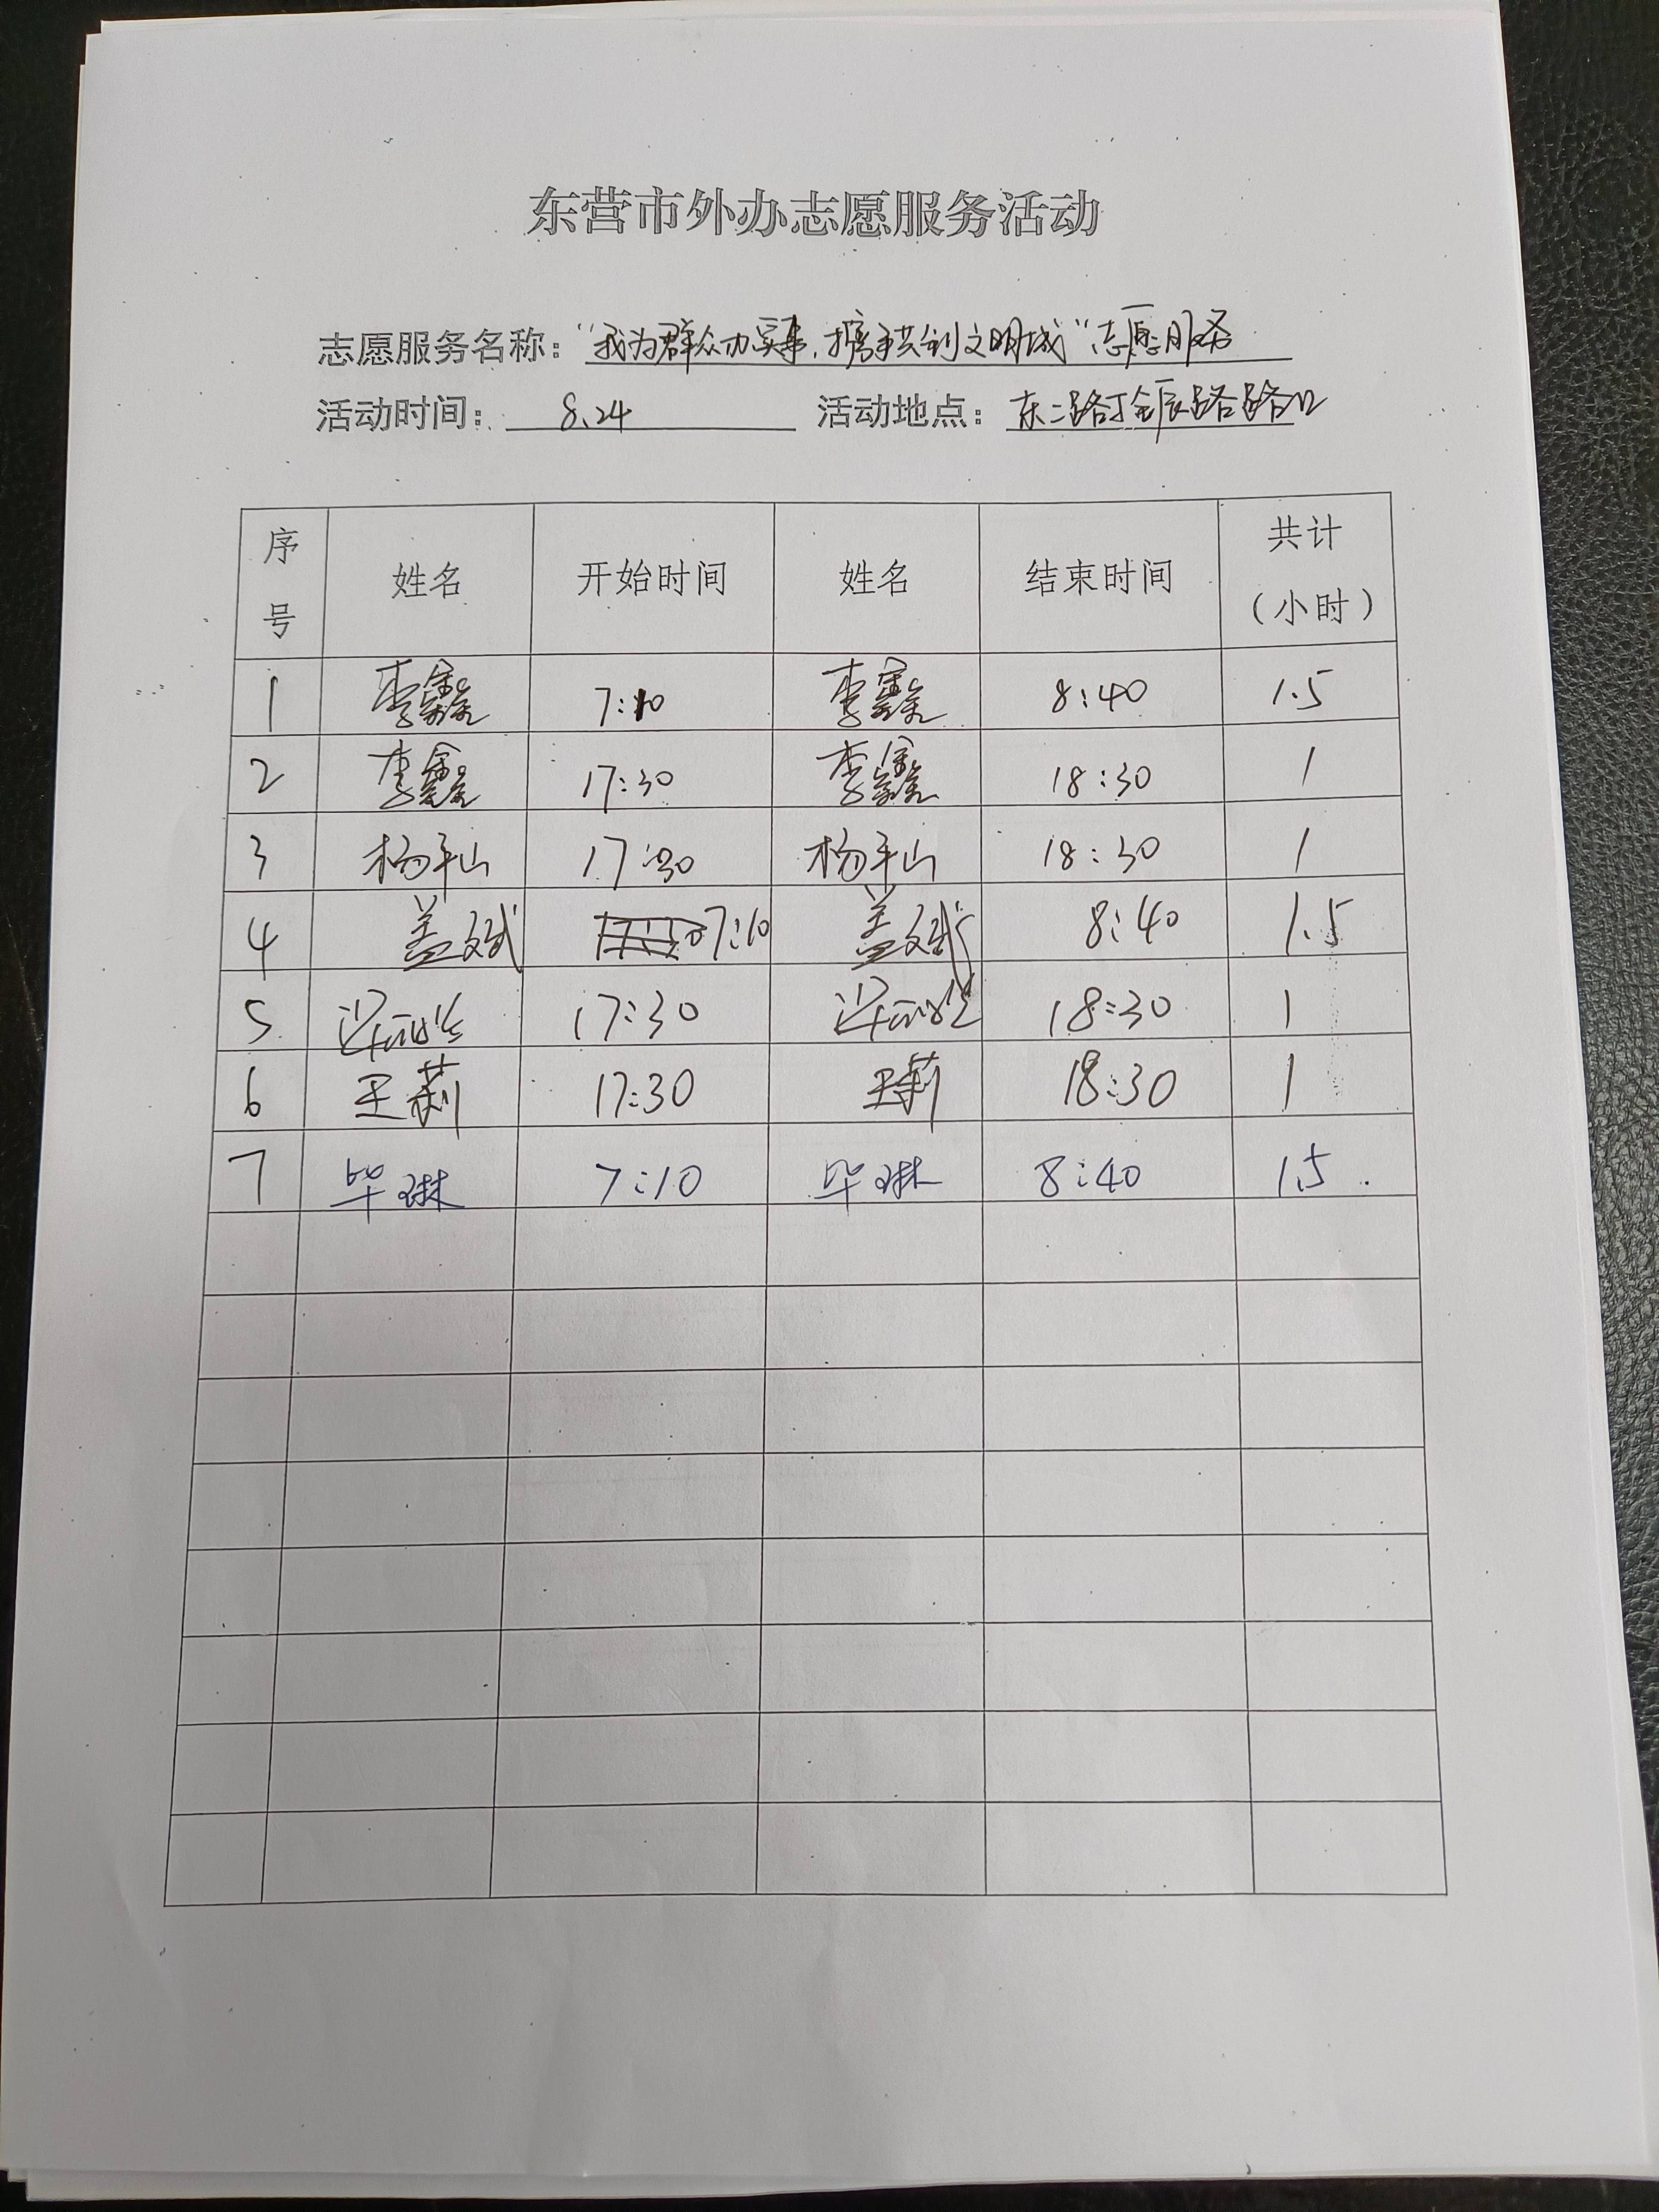 东营市外办志愿服务活动
志愿服务名称：“我为群众办实事，携手共创文明城”志愿服务
活动时间： 8.24 活动地点： 东二路金辰路路口
序号 姓名 开始时间 姓名 结束时间 共计（小时）
1 李鑫 7:10 李鑫 8:40 1.5
2 李鑫 17:30 李鑫 18:30 1
3 杨平山 17:30 杨平山 18:30 1
4 盖斌 7:10 盖斌 8:40 1.5
5 17:30 18:30 1
6 王莉 17:30 王莉 18:30 1
7 毕琳 7:10 毕琳 8:40 1.5